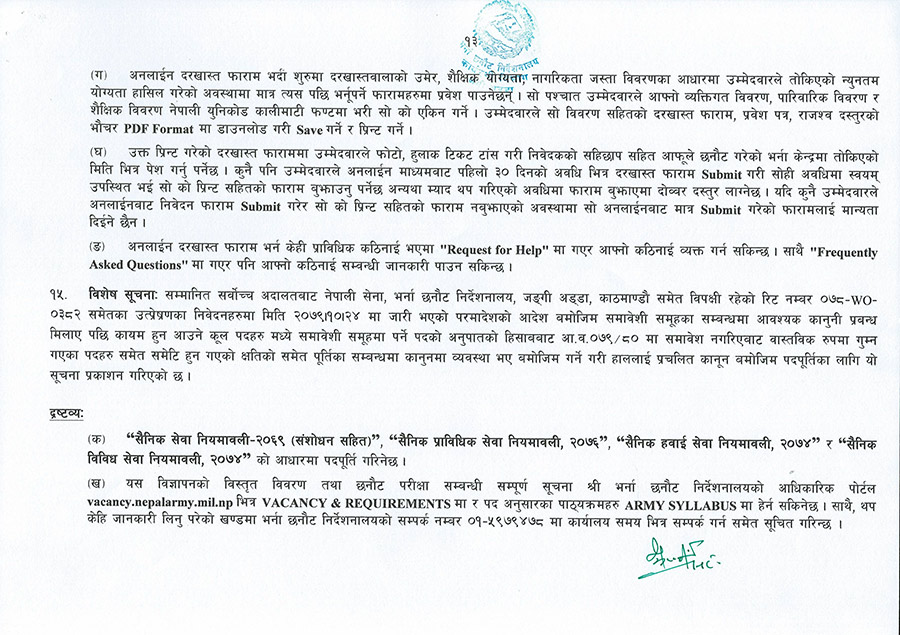 १३
भर्ना छनौट निर्देशनालय
(ग) अनलाईन दरखास्त फाराम भर्दा शुरुमा दरखास्तवालाको उमेर, शैक्षिक योग्यता, नागरिकता जस्ता विवरणका आधारमा उम्मेदवारले तोकिएको न्युनतम
योग्यता हासिल गरेको अवस्थामा मात्र त्यस पछि भर्नुपर्ने फारामहरुमा प्रवेश पाउनेछन् । सो पश्चात उम्मेदवारले आफ्नो व्यक्तिगत विवरण, पारिवारिक विवरण र
शैक्षिक विवरण नेपाली युनिकोड कालीमाटी फण्टमा भरी सो को एकिन गर्ने । उम्मेदवारले सो विवरण सहितको दरखास्त फाराम, प्रवेश पत्र, राजश्व दस्तुरको
भौचर PDF Format मा डाउनलोड गरी Save गर्ने र प्रिन्ट गर्ने ।
(घ) उक्त प्रिन्ट गरेको दरखास्त फाराममा उम्मेदवारले फोटो, हुलाक टिकट टांस गरी निवेदकको सहिछाप सहित आफूले छनौट गरेको भर्ना केन्द्रमा तोकिएको
मिति भित्र पेश गर्नु पर्नेछ । कुनै पनि उम्मेदवारले अनलाईन माध्यमवाट पहिलो ३० दिनको अवधि भित्र दरखास्त फाराम Submit गरी सोही अवधिमा स्वयम्
उपस्थित भई सो को प्रिन्ट सहितको फाराम बुझाउनु पर्नेछ अन्यथा म्याद थप गरिएको अवधिमा फाराम बुझाएमा दोव्वर दस्तुर लाग्नेछ । यदि कुनै उम्मेदवारले
अनलाईनवाट निवेदन फाराम Submit गरेर सो को प्रिन्ट सहितको फाराम नवुझाएको अवस्थामा सो अनलाईनवाट मात्र Submit गरेको फारामलाई मान्यता
दिईने छैन ।
(ङ) अनलाईन दरखास्त फाराम भर्न केही प्राविधिक कठिनाई भएमा "Request for Help" मा गएर आफ्नो कठिनाई व्यक्त गर्न सकिन्छ । साथै "Frequently
Asked Questions" मा गएर पनि आफ्नो कठिनाई सम्वन्धी जानकारी पाउन सकिन्छ ।
१५. विशेष सूचनाः सम्मानित सर्वोच्च अदालतबाट नेपाली सेना, भर्ना छनौट निर्देशनालय, जङ्गी अड्डा, काठमाण्डौ समेत विपक्षी रहेको रिट नम्वर ०७८-WO-
०३८२ समेतका उत्प्रेषणका निवेदनहरुमा मिति २०७९।१०।२४ मा जारी भएको परमादेशको आदेश बमोजिम समावेशी समूहका सम्वन्धमा आवश्यक कानुनी प्रवन्ध
मिलाए पछि कायम हुन आउने कूल पदहरु मध्ये समावेशी समूहमा पर्ने पदको अनुपातको हिसाबबाट आ.व.०७९/८० मा समावेश नगरिएबाट वास्तविक रुपमा गुम्न
गएका पदहरु समेत समेटि हुन गएको क्षतिको समेत पूर्तिका सम्वन्धमा कानुनमा व्यवस्था भए बमोजिम गर्ने गरी हाललाई प्रचलित कानून बमोजिम पदपूर्तिका लागि यो
सूचना प्रकाशन गरिएको छ ।
द्रष्टव्यः
(क) “सैनिक सेवा नियमावली-२०६९ (संशोधन सहित)”, “सैनिक प्राविधिक सेवा नियमावली, २०७६”, “सैनिक हवाई सेवा नियमावली, २०७४” र “सैनिक
विविध सेवा नियमावली, २०७४” को आधारमा पदपूर्ति गरिनेछ ।
(ख) यस विज्ञापनको विस्तृत विवरण तथा छनौट परीक्षा सम्वन्धी सम्पूर्ण सूचना श्री भर्ना छनौट निर्देशनालयको आधिकारिक पोर्टल
vacancy.nepalarmy.mil.np भित्र VACANCY & REQUIREMENTS मा र पद अनुसारका पाठ्यक्रमहरु ARMY SYLLABUS मा हेर्न सकिनेछ । साथै, थप
केहि जानकारी लिनु परेको खण्डमा भर्ना छनौट निर्देशनालयको सम्पर्क नम्वर ०१-५९७९४७८ मा कार्यालय समय भित्र सम्पर्क गर्न समेत सूचित गरिन्छ ।